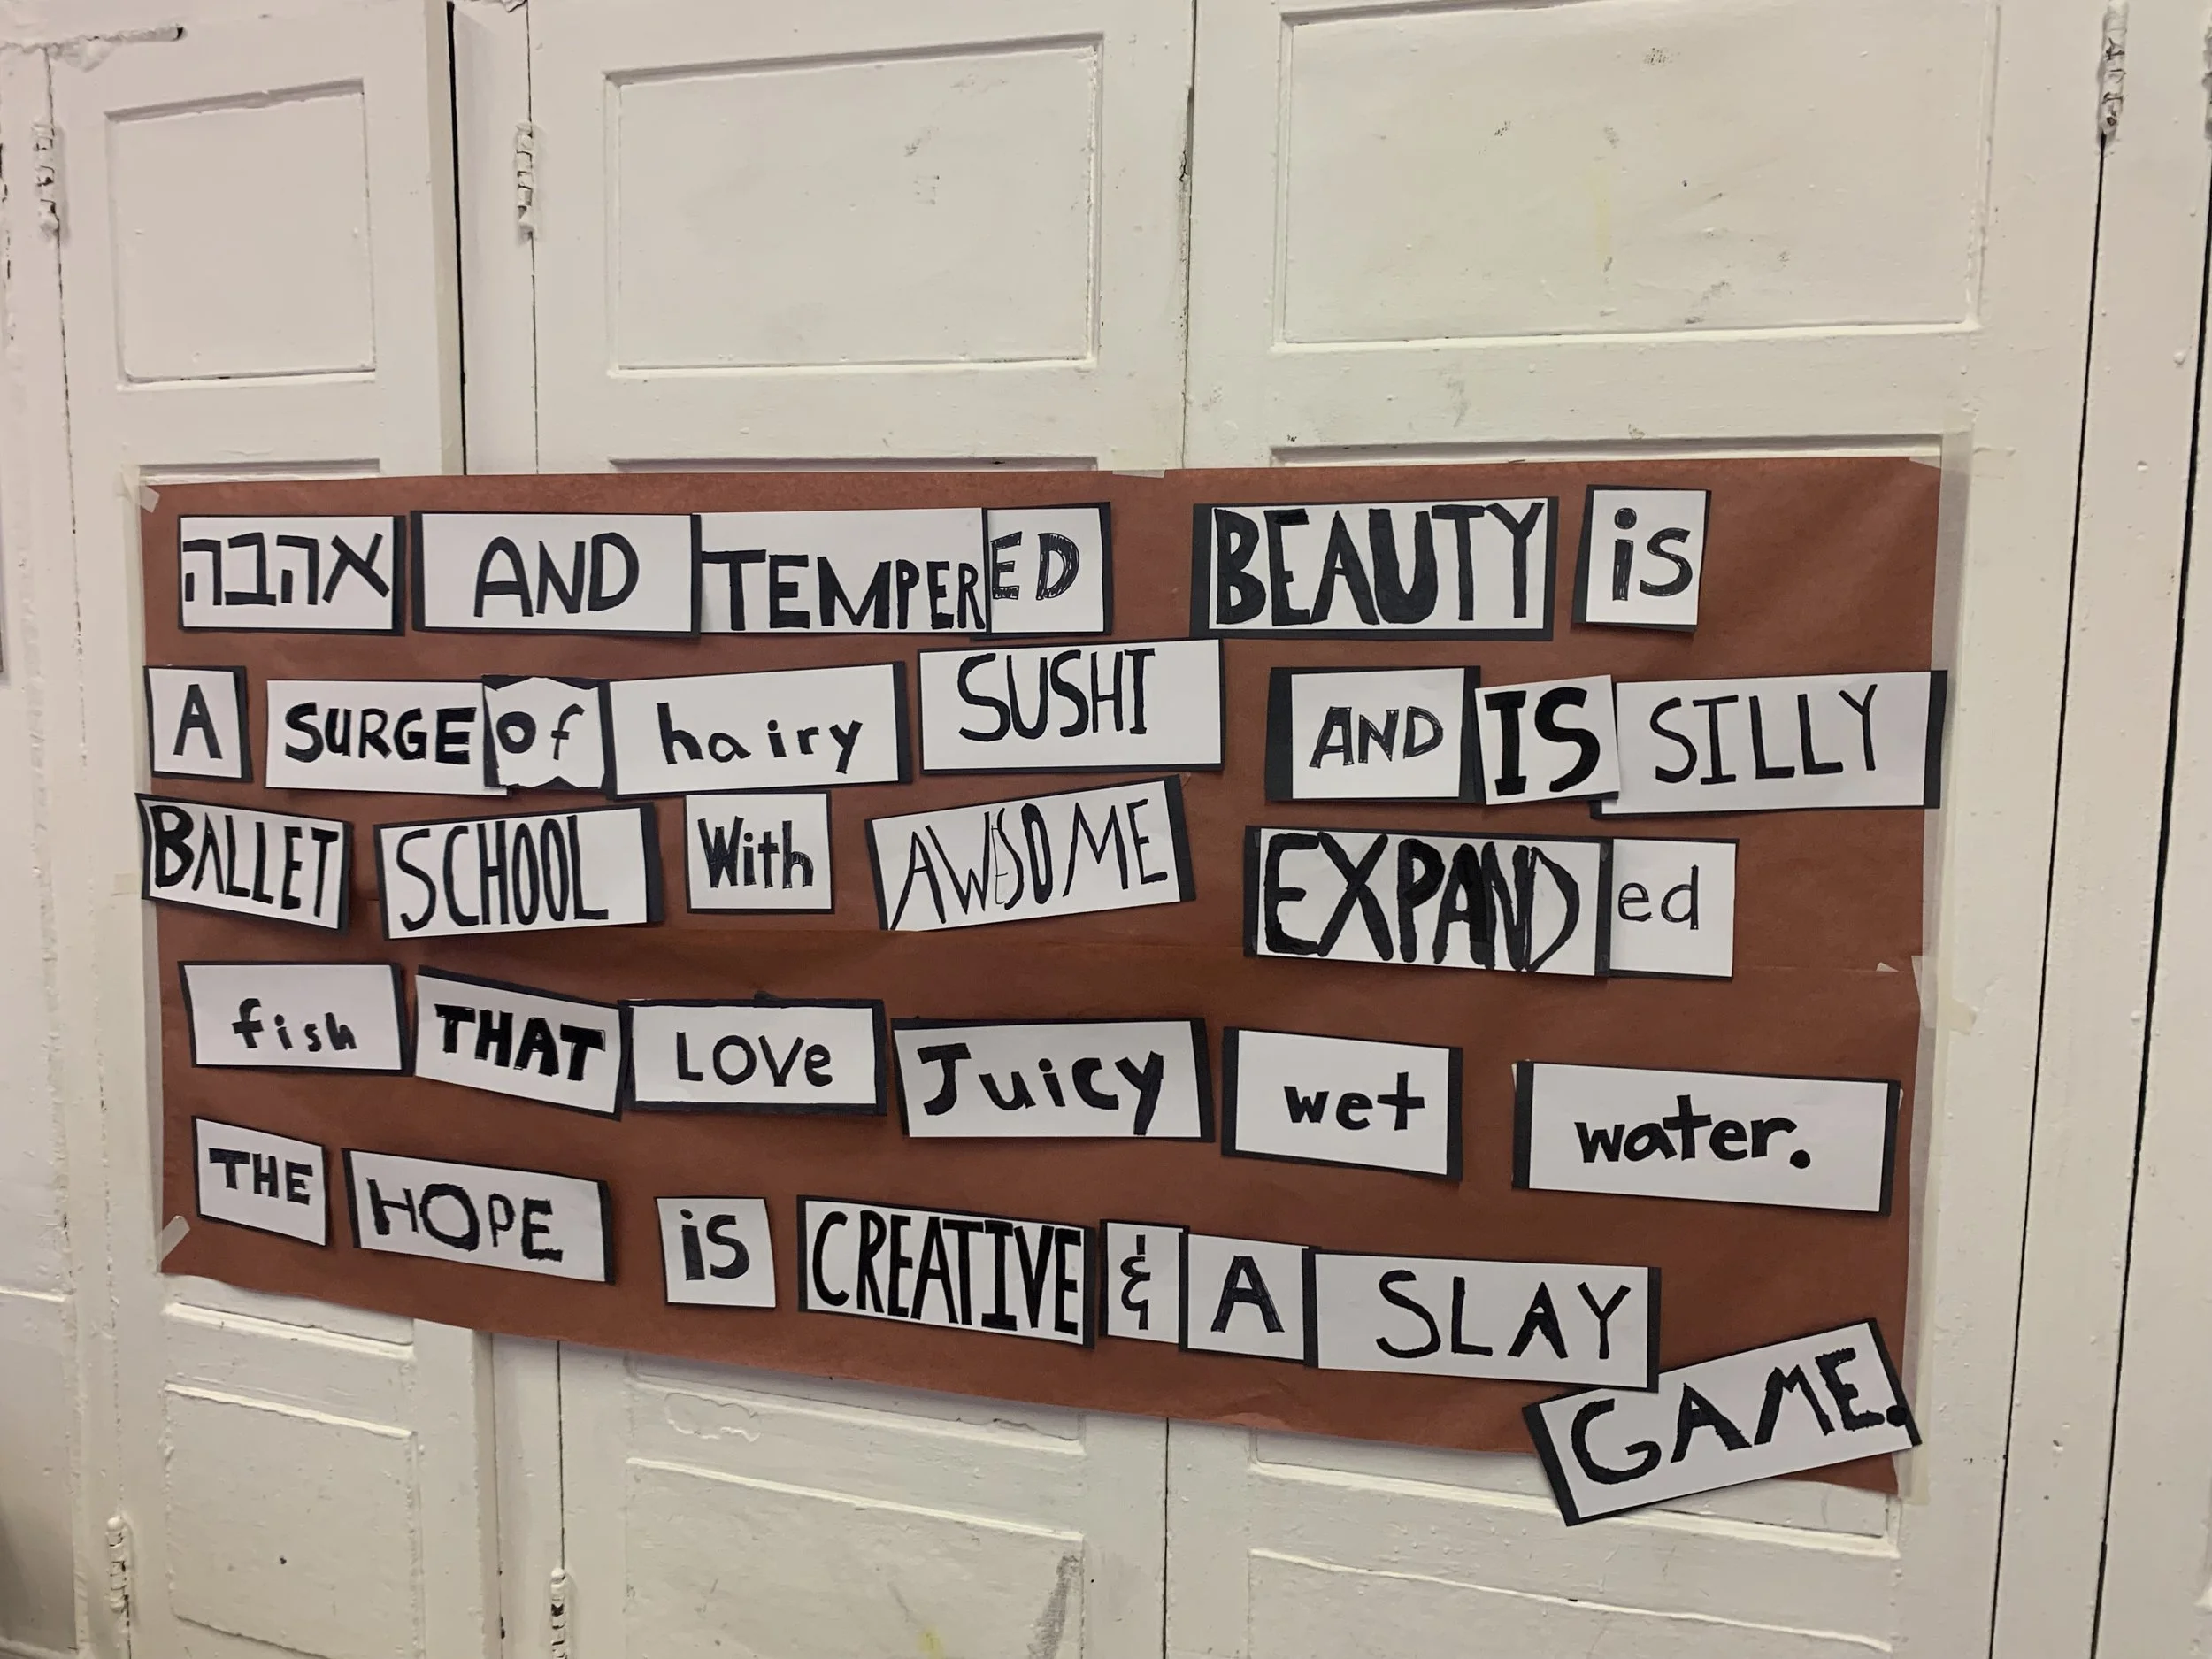 אהבה AND TEMPERED BEAUTY is
A SURGE of hairy SUSHI AND IS SILLY
BALLET SCHOOL With AWESOME EXPANDed
fish THAT LOVe Juicy wet water.
THE HOPE is CREATIVE & A SLAY
GAME.